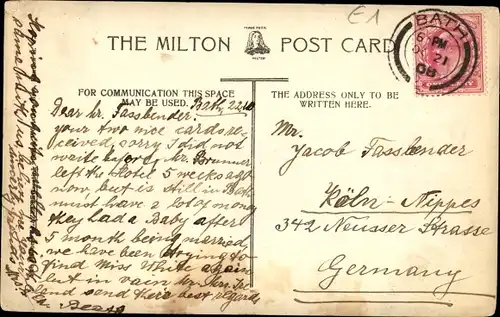 £1
BATH
6 PM
OC 21
08
THE MILTON POST CARD
FOR COMMUNICATION THIS SPACE
MAY BE USED.
THE ADDRESS ONLY TO BE
WRITTEN HERE.
Bath, 22.10
Dear Mr. Fassbender.
your two nice cards re-
ceived, sorry I did not
write before, Mr. Brunner
left the Hotel 5 weeks ago
now, but is still in Bath
must have a lot of money
they had a Baby after
5 month being married,
we have been trying to
find Miss White again
but in vain
and send there best regards
Mr.
Jacob Fassbender
Köln-Nippes
342 Neusser Strasse
Germany
Hoping
sincerely